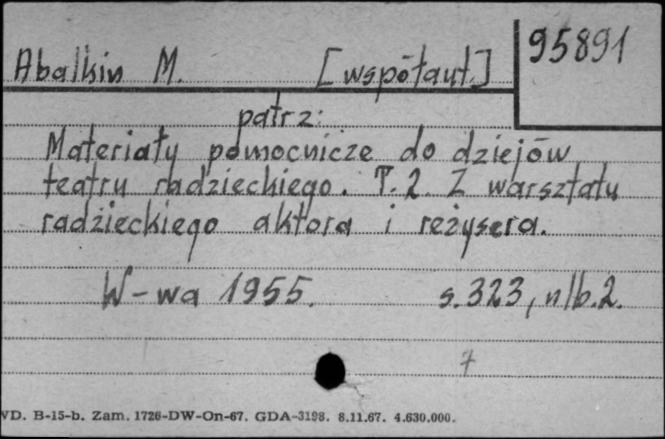 95891
Abalkin M. [współaut.]
patrz:
Materiały pomocnicze do dziejów
teatru radzieckiego. T.2. Z warsztatu
radzieckiego aktora i reżysera.
W-wa 1955. s.323, nlb.2.
7
VD. B-15-b. Zam. 1726-DW-On-67. GDA-3198. 8.11.67. 4.630.000.